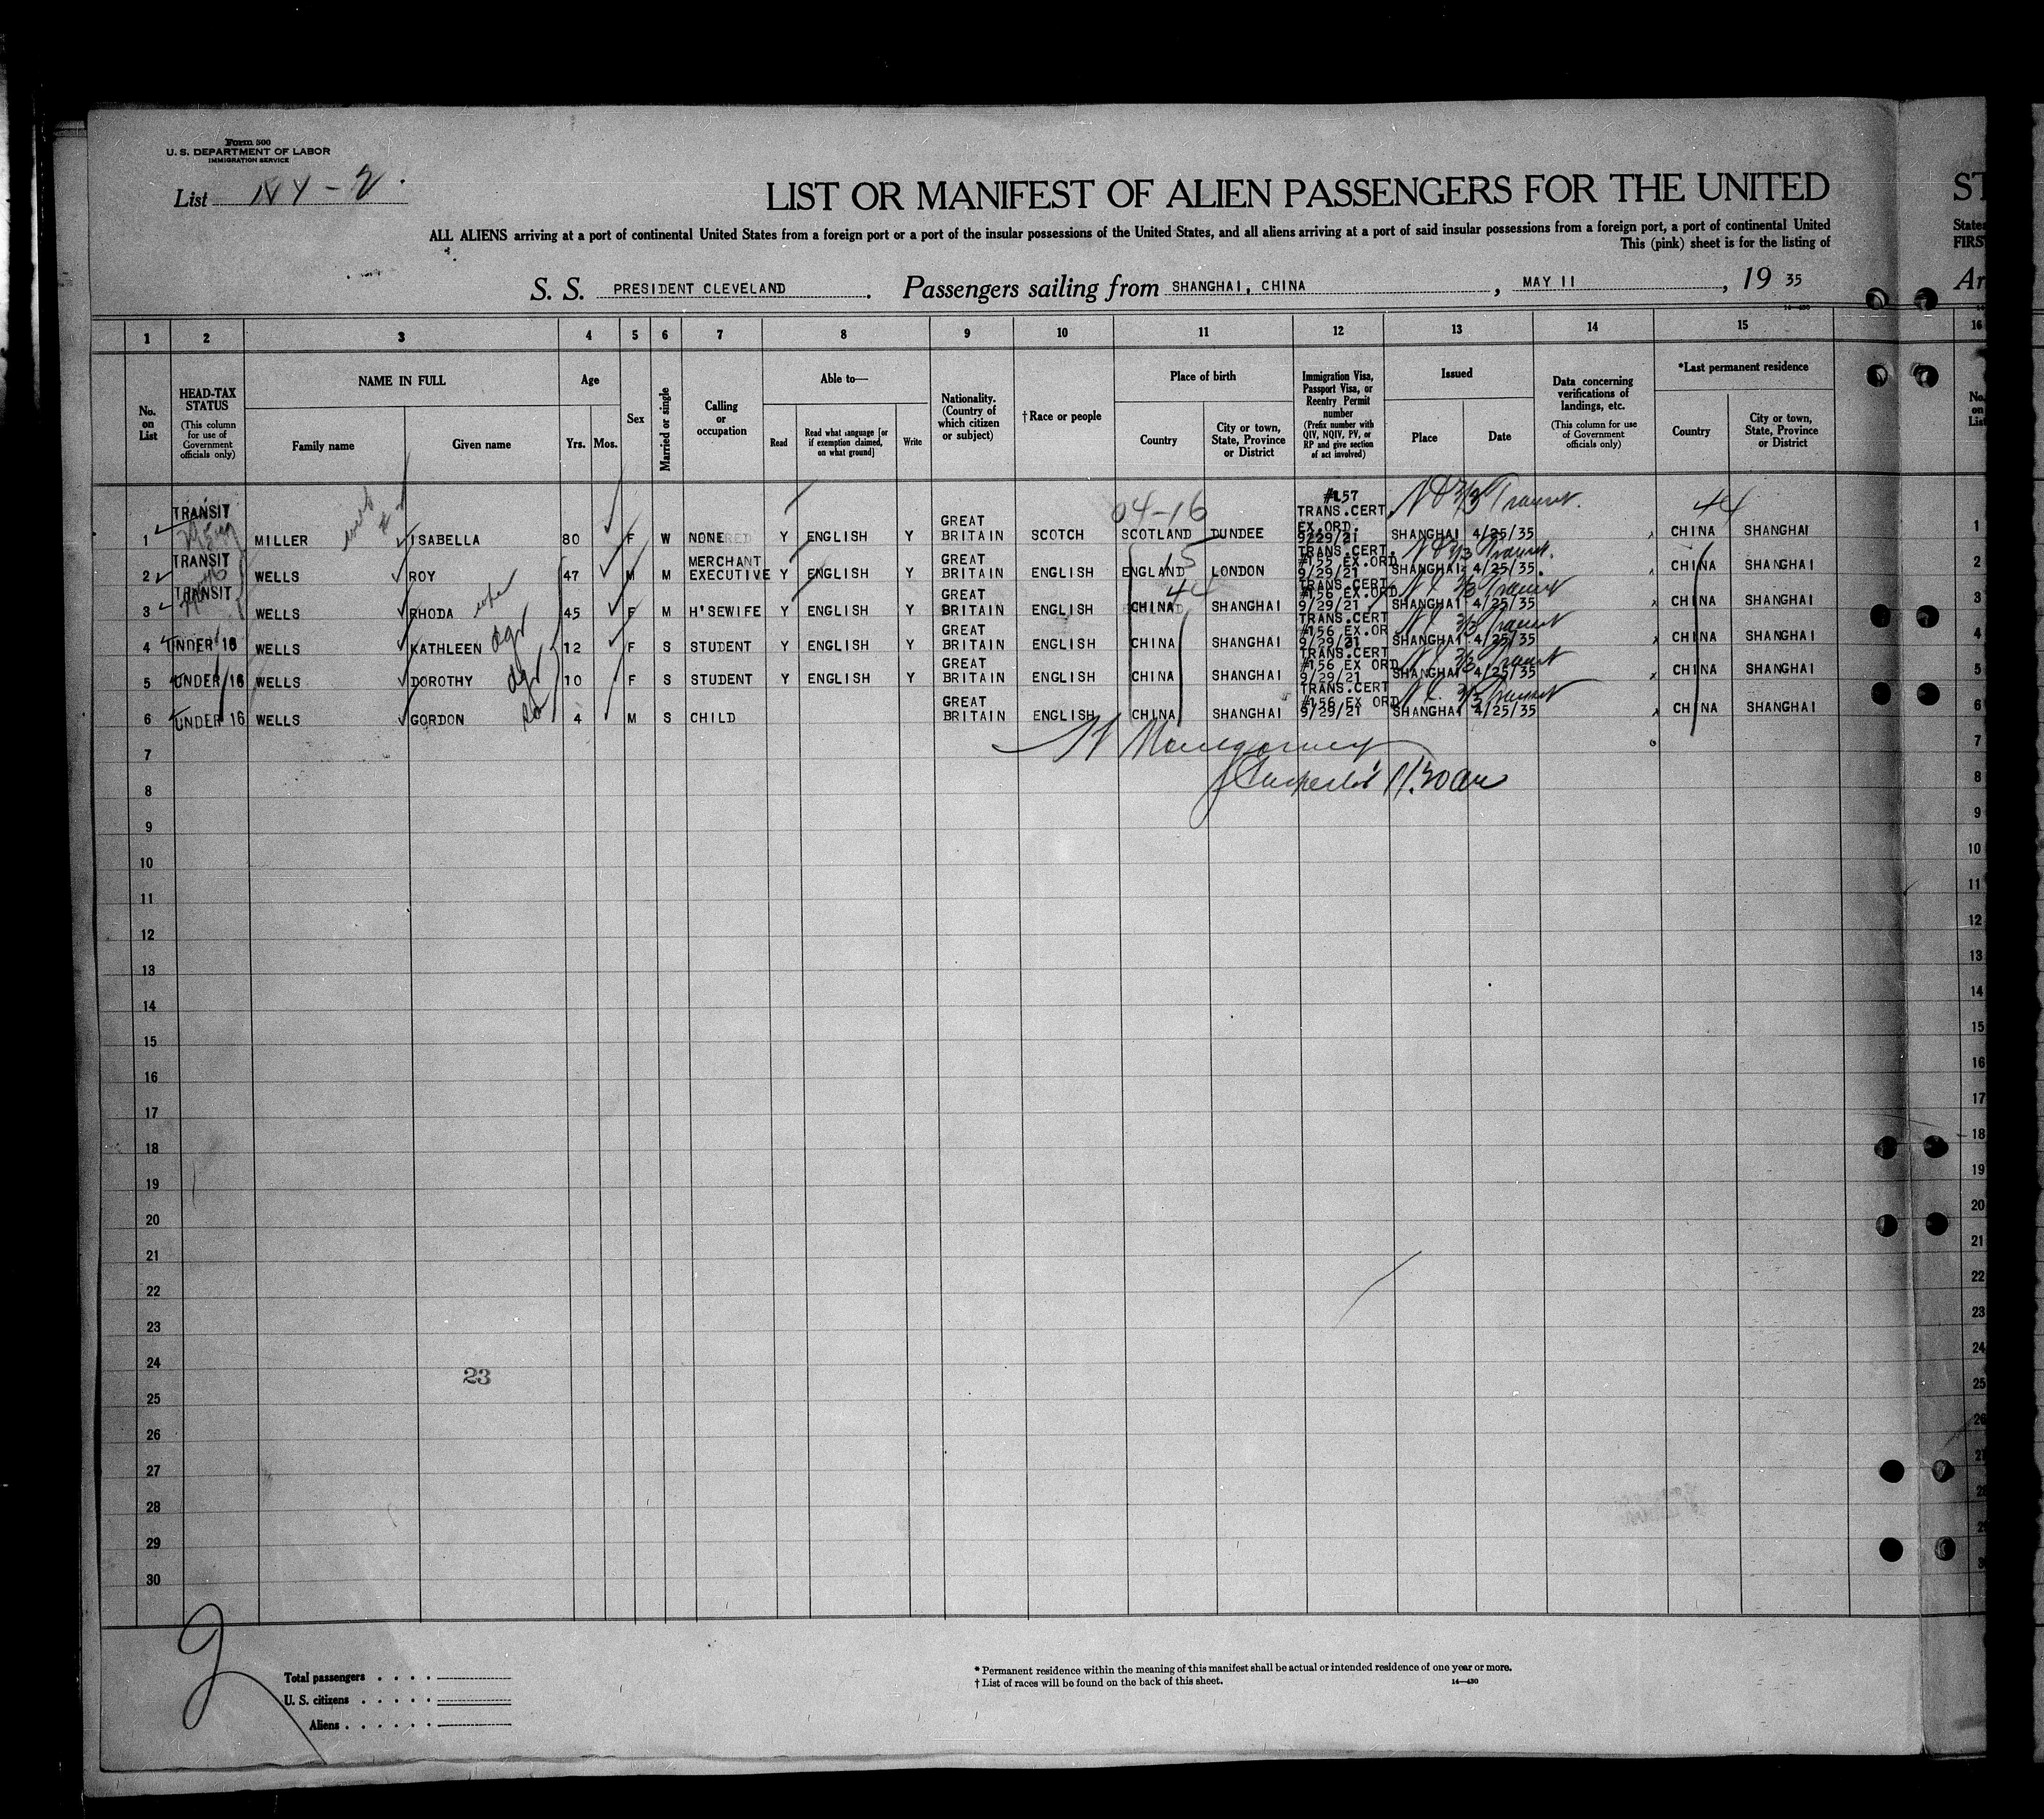 Form 500
U. S. DEPARTMENT OF LABOR
IMMIGRATION SERVICE
List NY - 2.
LIST OR MANIFEST OF ALIEN PASSENGERS FOR THE UNITED ST
ALL ALIENS arriving at a port of continental United States from a foreign port or a port of the insular possessions of the United States, and all aliens arriving at a port of said insular possessions from a foreign port, a port of continental United States
This (pink) sheet is for the listing of FIRS
S. S. PRESIDENT CLEVELAND. Passengers sailing from SHANGHAI, CHINA, MAY 11, 19 35 Ar
14—430
1 2 3 4 5 6 7 8 9 10 11 12 13 14 15 16
No. on List
HEAD-TAX STATUS
(This column for use of Government officials only)
NAME IN FULL
Family name
Given name
Age
Yrs. Mos.
Sex
Married or single
Calling or occupation
Able to—
Read
Read what language [or if exemption claimed, on what ground]
Write
Nationality. (Country of which citizen or subject)
†Race or people
Place of birth
Country
City or town, State, Province or District
Immigration Visa, Passport Visa, or Reentry Permit number
(Prefix number with QIV, NQIV, PV, or RP and give section of act involved)
Issued
Place
Date
Data concerning verifications of landings, etc.
(This column for use of Government officials only)
*Last permanent residence
Country
City or town, State, Province or District
No. on List
1 TRANSIT MILLER ISABELLA 80 F W NONE Y ENGLISH Y GREAT BRITAIN SCOTCH 04-16 SCOTLAND DUNDEE #157 TRANS.CERT. EX.ORD. 9/29/21 SHANGHAI 4/25/35 Transit. 44 CHINA SHANGHAI 1
2 TRANSIT WELLS ROY 47 M M MERCHANT EXECUTIVE Y ENGLISH Y GREAT BRITAIN ENGLISH 15 ENGLAND LONDON TRANS.CERT. #155 EX.ORD 9/29/21 SHANGHAI 4/25/35. Transit. CHINA SHANGHAI 2
3 TRANSIT WELLS RHODA wife 45 F M H'SEWIFE Y ENGLISH Y GREAT BRITAIN ENGLISH 44 CHINA SHANGHAI TRANS.CERT #156 EX.ORD 9/29/21 SHANGHAI 4/25/35 Transit CHINA SHANGHAI 3
4 UNDER 16 WELLS KATHLEEN dgr 12 F S STUDENT Y ENGLISH Y GREAT BRITAIN ENGLISH CHINA SHANGHAI TRANS.CERT #156 EX.OR 9/29/21 SHANGHAI 4/25/35 Transit CHINA SHANGHAI 4
5 UNDER 16 WELLS DOROTHY dgr 10 F S STUDENT Y ENGLISH Y GREAT BRITAIN ENGLISH CHINA SHANGHAI TRANS.CERT #156 EX ORD 9/29/21 SHANGHAI 4/25/35 Transit CHINA SHANGHAI 5
6 UNDER 16 WELLS GORDON so 4 M S CHILD GREAT BRITAIN ENGLISH CHINA SHANGHAI TRANS.CERT #156 EX ORD 9/29/21 SHANGHAI 4/25/35 Transit CHINA SHANGHAI 6
7 Montgomery 7
8 Inspector 11.30 am 8
9 9
10 10
11 11
12 12
13 13
14 14
15 15
16 16
17 17
18 18
19 19
20 20
21 21
22 22
23 23
24 24
23
25 25
26 26
27
28
29
30
2
Total passengers . . . .
U. S. citizens . . . . .
Aliens . . . . . .
* Permanent residence within the meaning of this manifest shall be actual or intended residence of one year or more.
† List of races will be found on the back of this sheet.
14—430